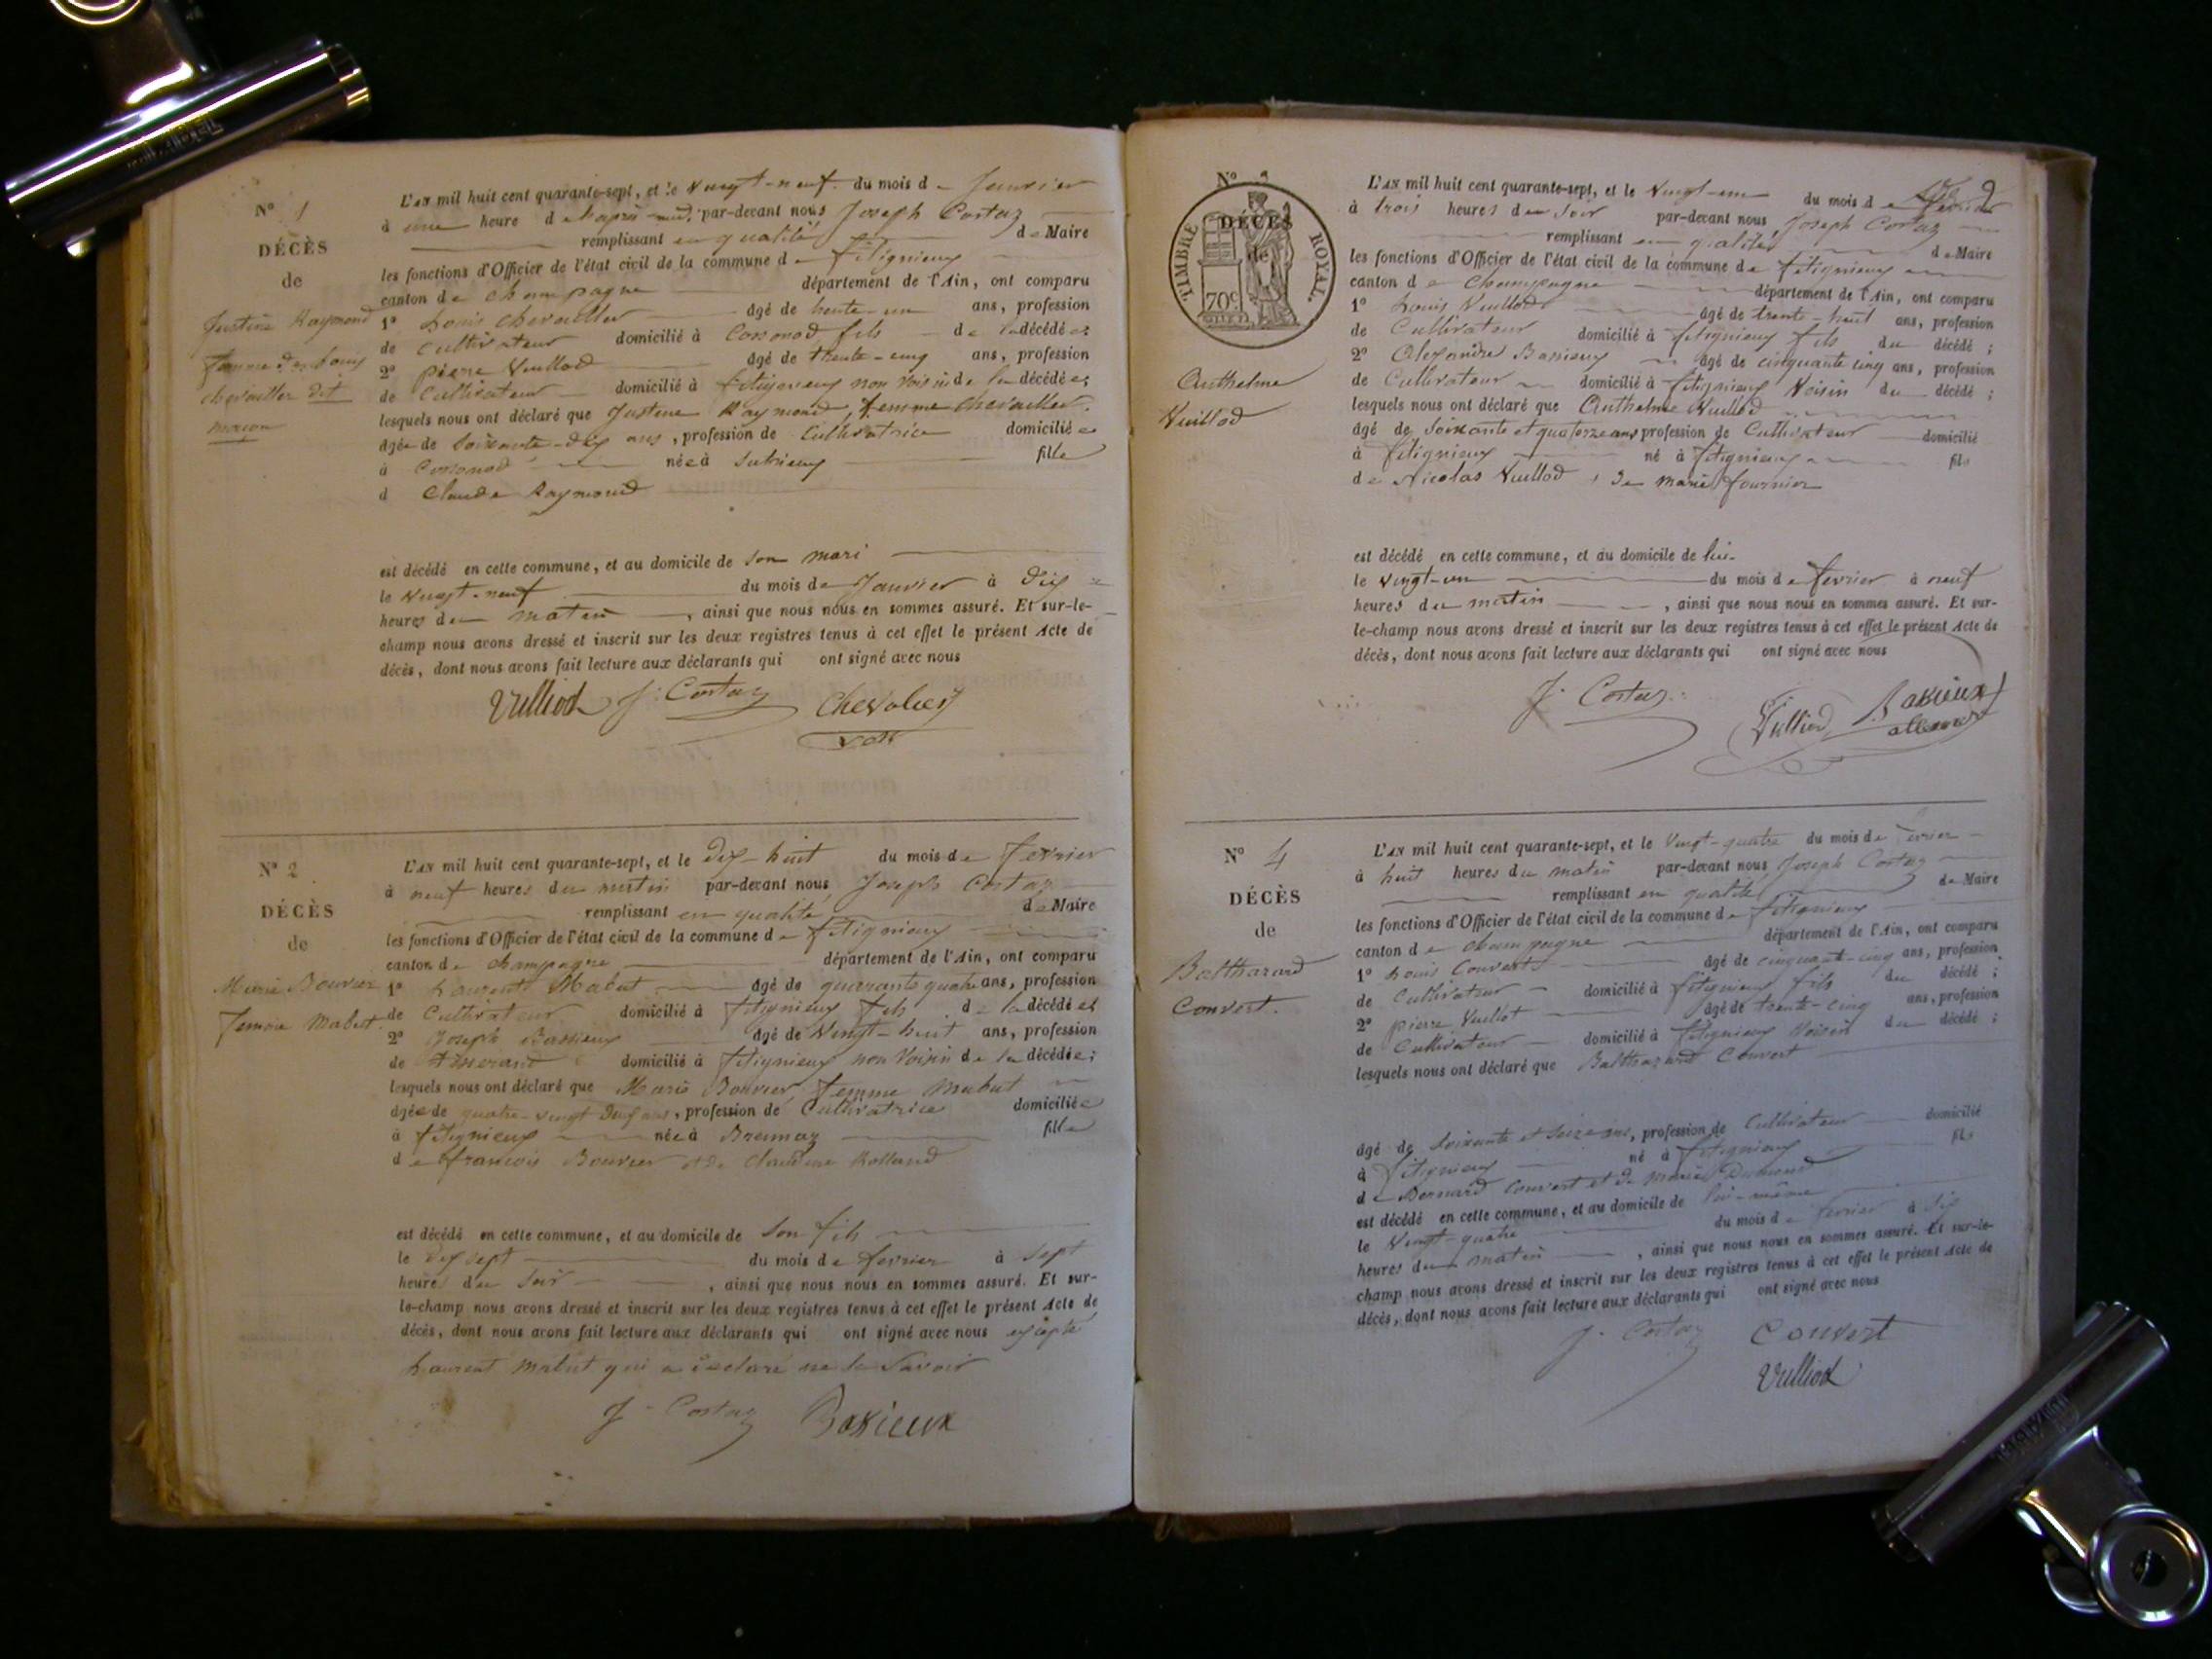 N° 1
DÉCÈS
de
Justine Raymond
femme de Louis
chevailler dit
maçon
L'AN mil huit cent quarante-sept, et le vingt-neuf du mois de Janvier
à une heure de l'après-midi par-devant nous Joseph Costaz
remplissant en qualité de Maire
les fonctions d'Officier de l'état civil de la commune de fitignieux
canton de champagne département de l'Ain, ont comparu
1° Louis chevailler âgé de trente-un ans, profession
de cultivateur domicilié à Cossonod fils de la décédée;
2° pierre Vuillod âgé de trente-cinq ans, profession
de Cultivateur domicilié à fitignieux non voisin de la décédée;
lesquels nous ont déclaré que Justine Raymond, femme chevailler
âgée de soixante-dix ans, profession de Cultivatrice domiciliée
à Cossonod née à Sutrieux fille
d Claude Raymond
est décédé en cette commune, et au domicile de son mari
le vingt-neuf du mois de Janvier à dix
heures du matin, ainsi que nous nous en sommes assuré. Et sur-le-
champ nous avons dressé et inscrit sur les deux registres tenus à cet effet le présent Acte de
décès, dont nous avons fait lecture aux déclarants qui ont signé avec nous
Vulliod J. Costaz Chevalier
N° 2
DÉCÈS
de
Marie Bouvier
femme Mabut
L'AN mil huit cent quarante-sept, et le dix-huit du mois de fevrier
à neuf heures du matin par-devant nous Joseph Costaz
remplissant en qualité de Maire
les fonctions d'Officier de l'état civil de la commune de fitignieux
canton de champagne département de l'Ain, ont comparu
1° Laurent Mabut âgé de quarante quatre ans, profession
de Cultivateur domicilié à fitignieux fils de la décédée
2° Joseph Bassieux âgé de vingt-huit ans, profession
de domicilié à fitignieux non voisin de la décédée;
lesquels nous ont déclaré que Marie Bouvier, femme Mabut
âgée de quatre-vingt deux ans, profession de Cultivatrice domiciliée
à fitignieux née à Brennaz fille
de francois Bouvier et de Claudine Rolland
est décédé en cette commune, et au domicile de son fils
le dix sept du mois de fevrier à sept
heures du soir, ainsi que nous nous en sommes assuré. Et sur-
le-champ nous avons dressé et inscrit sur les deux registres tenus à cet effet le présent Acte de
décès, dont nous avons fait lecture aux déclarants qui ont signé avec nous excepté
Laurent Mabut qui a déclaré ne le savoir
J. Costaz Bassieux
2
N° 3
DÉCÈS
de
TIMBRE ROYAL.
70c
Anthelme
Vuillod
L'AN mil huit cent quarante-sept, et le vingt-un du mois de fevrier
à trois heures du soir par-devant nous Joseph Costaz
remplissant en qualité de Maire
les fonctions d'Officier de l'état civil de la commune de fitignieux
canton de Champagne département de l'Ain, ont comparu
1° Louis Vuillod âgé de trente-huit ans, profession
de Cultivateur domicilié à fitignieux fils du décédé;
2° Alexandre Bassieux âgé de cinquante cinq ans, profession
de Cultivateur domicilié à fitignieux Voisin du décédé;
lesquels nous ont déclaré que Anthelme Vuillod
âgé de soixante et quatorze ans profession de Cultivateur domicilié
à fitignieux né à fitignieux fils
de Nicolas Vuillod, de marie fournier
est décédé en cette commune, et au domicile de lui.
le vingt-un du mois de fevrier à neuf
heures du matin, ainsi que nous nous en sommes assuré. Et sur-
le-champ nous avons dressé et inscrit sur les deux registres tenus à cet effet le présent Acte de
décès, dont nous avons fait lecture aux déclarants qui ont signé avec nous
J. Costaz Vulliod Bassieux
N° 4
DÉCÈS
de
Balthazard
Convert.
L'AN mil huit cent quarante-sept, et le vingt-quatre du mois de fevrier
à huit heures du matin par-devant nous Joseph Costaz
remplissant en qualité de Maire
les fonctions d'Officier de l'état civil de la commune de fitignieux
canton de champagne département de l'Ain, ont comparu
1° Louis Convert âgé de cinquante-cinq ans, profession
de Cultivateur domicilié à fitignieux fils du décédé;
2° pierre Vuillot âgé de trente-cinq ans, profession
de Cultivateur domicilié à fitignieux Voisin du décédé;
lesquels nous ont déclaré que Balthazard Convert
âgé de soixante et seize ans, profession de Cultivateur domicilié
à fitignieux né à fitignieux fils
de Bernard Convert et de marie Dumond
est décédé en cette commune, et au domicile de lui-même
le vingt-quatre du mois de fevrier à six
heures du matin, ainsi que nous nous en sommes assuré. Et sur-le-
champ nous avons dressé et inscrit sur les deux registres tenus à cet effet le présent Acte de
décès, dont nous avons fait lecture aux déclarants qui ont signé avec nous
J. Costaz Convert
Vulliod